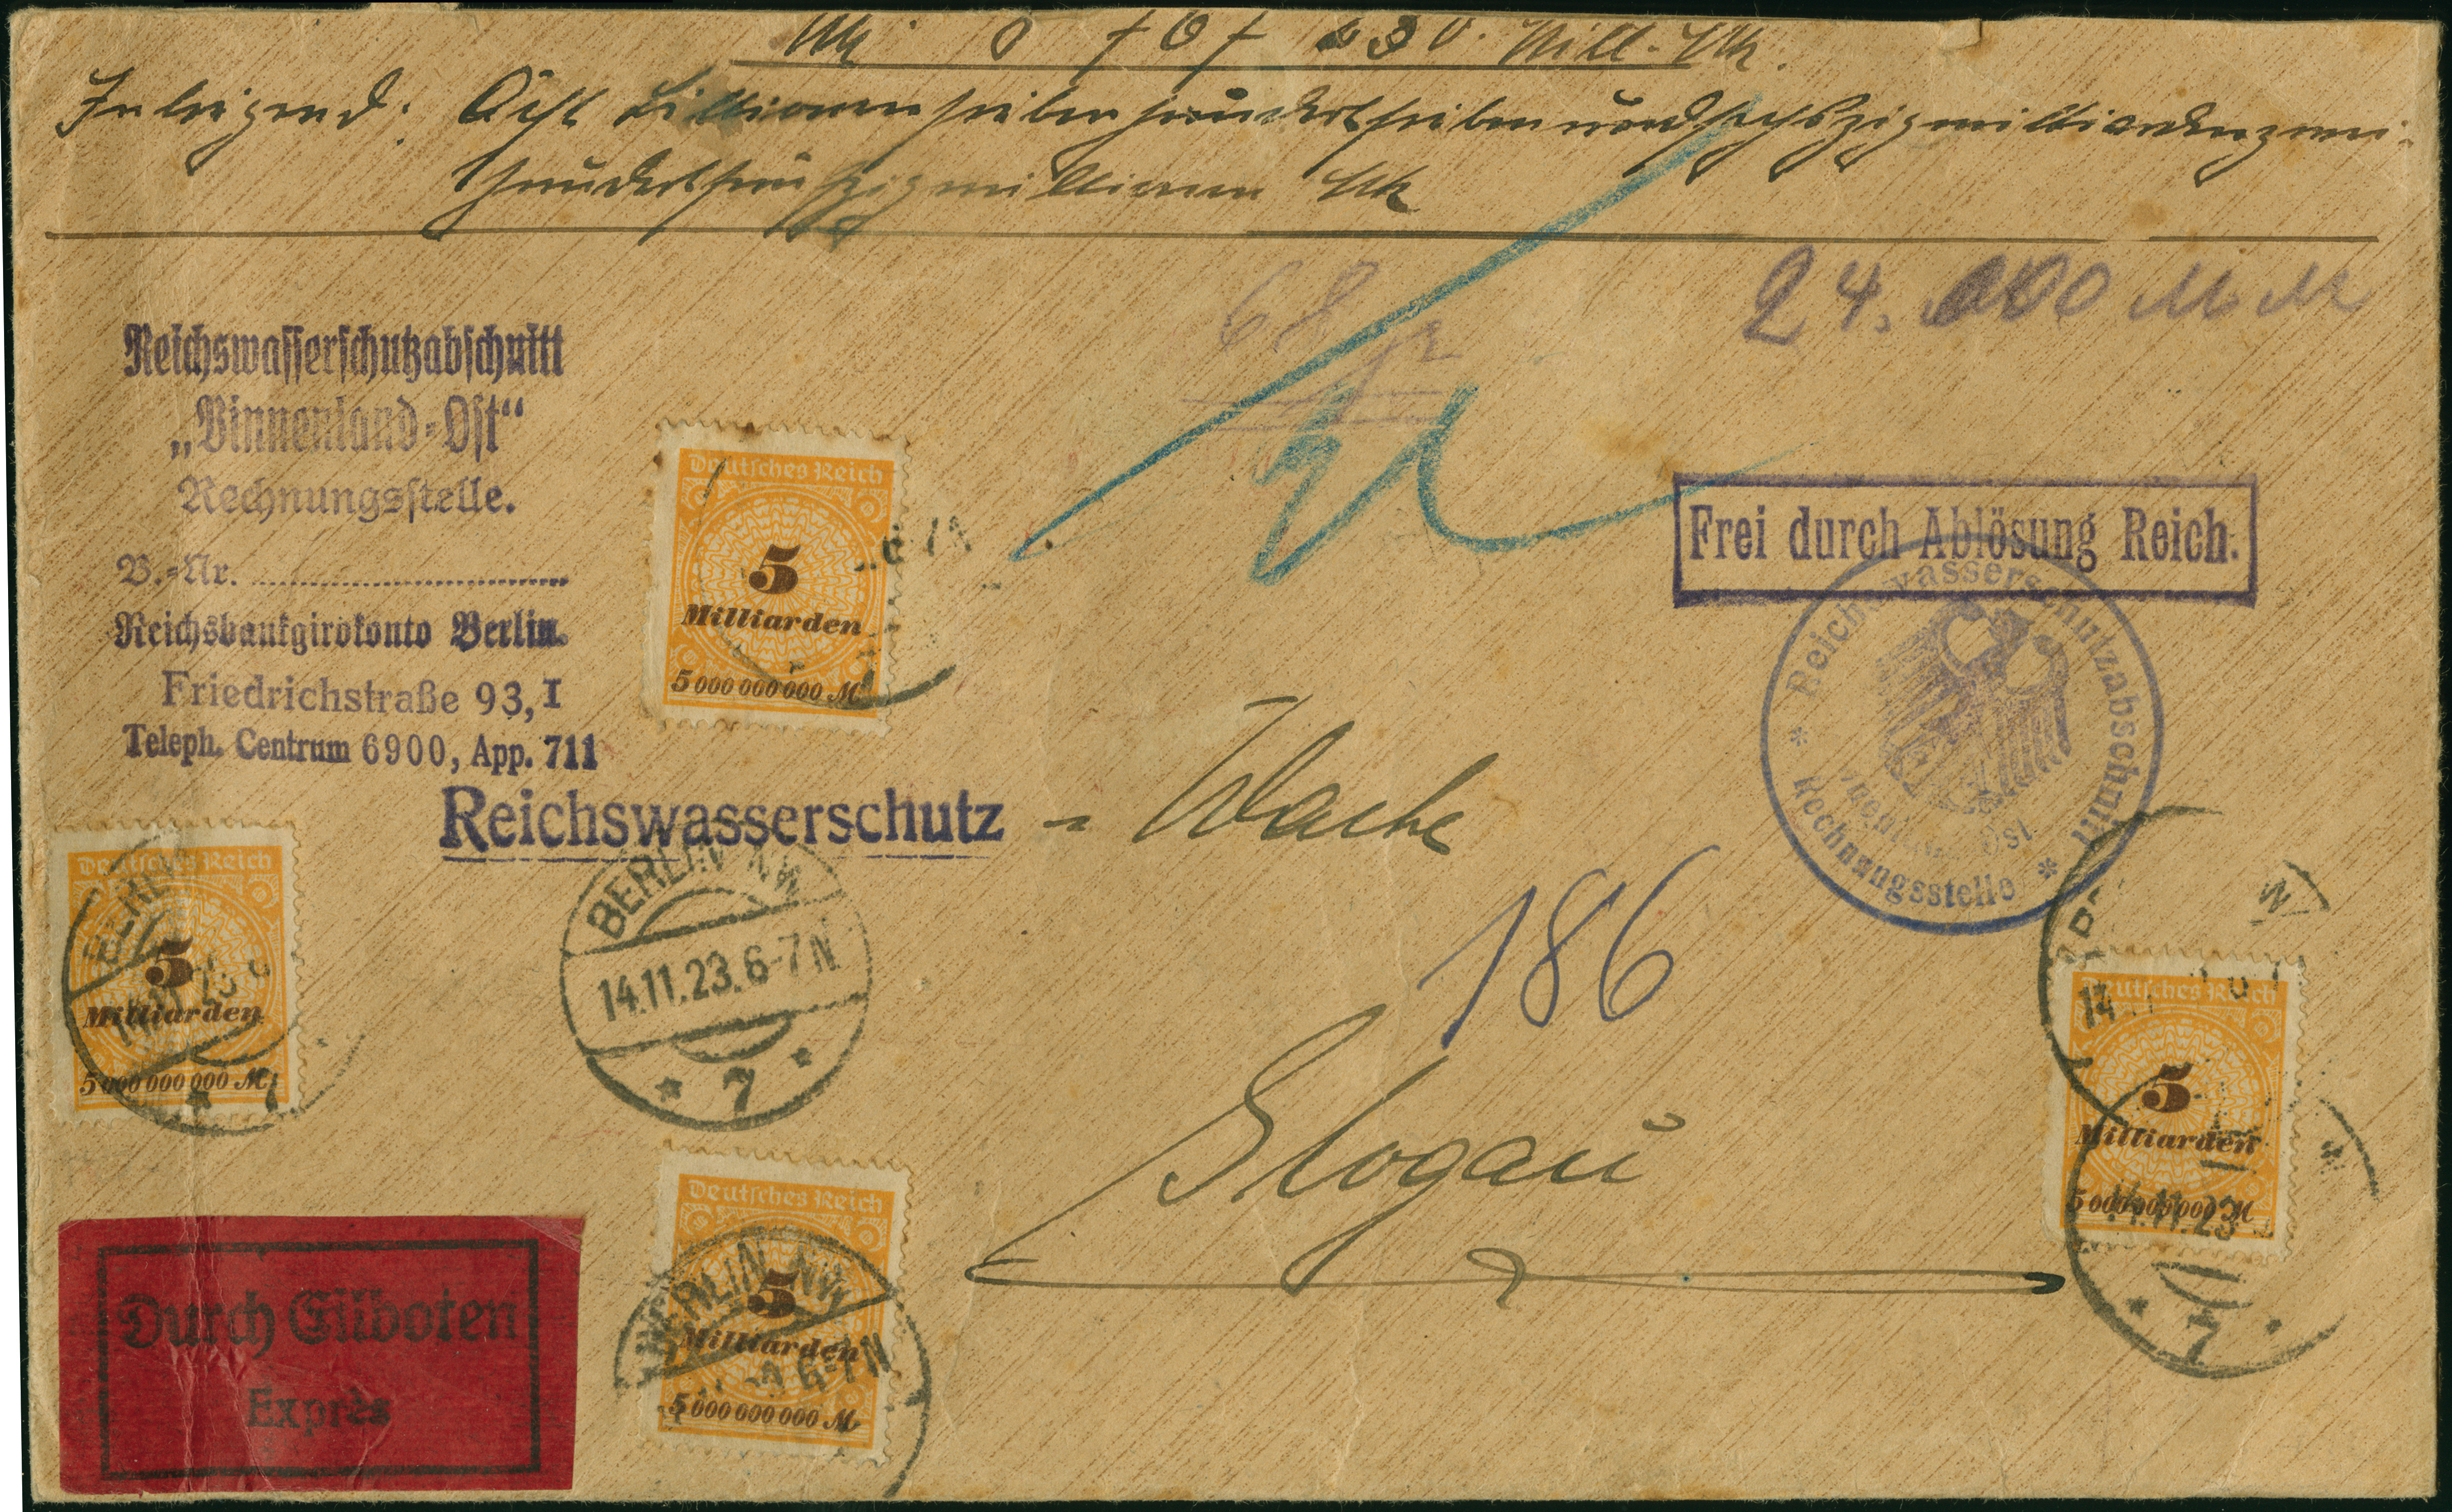 Inliegend: Acht Billionensiebenhundertsiebenundsechszigmilliardenzwei-
hundertfünfzigmillionen Mk
68 gr
24.000 M M
Reichswasserschutzabschnitt
„Binnenland-Ost“
Rechnungsstelle.
B.-Nr. ..............................
Reichsbankgirokonto Berlin.
Friedrichstraße 93, I
Teleph. Centrum 6900, App. 711
Deutsches Reich
5
Milliarden
5 000 000 000 M
Frei durch Ablösung Reich.
* Reichswasserschutzabschnitt *
Rechnungsstelle
Reichswasserschutz - Wache
186
Glogau
Deutsches Reich
5
Milliarden
5 000 000 000 M
BERLIN NW
14.11.23. 6-7 N
* 7 *
Deutsches Reich
5
Milliarden
5 000 000 000 M
BERLIN NW
6-7 N
Deutsches Reich
5
Milliarden
5 000 000 000 M
14.11.23
* 7 *
Durch Eilboten
Exprès